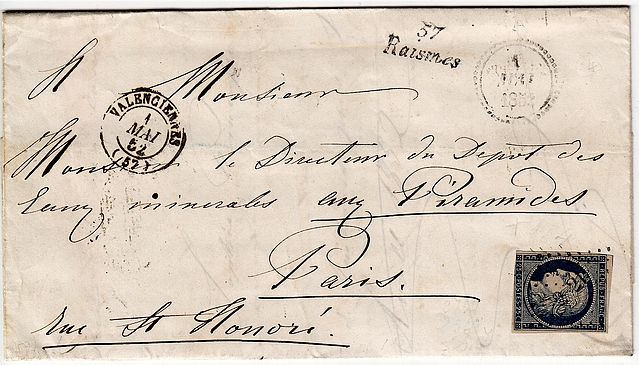 57
Raismes
1
MAI
1852
VALENCIENNES
1
MAI
52
(57)
A Monsieur
Monsieur le Directeur du Depot des
Eaux minerales aux Piramides
Paris.
rue St Honoré.